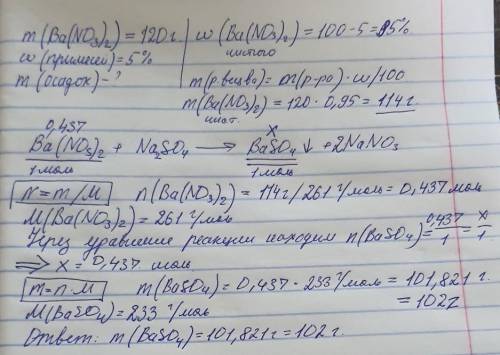 m(Ba(NO3)2) = 120 г. | ω(Ba(NO3)2) = 100 - 5 = 95%
ω(примесей) = 5% | чистого
m(осадок) - ? | m(р.вещва) = m(р-ра) · ω/100
m(Ba(NO3)2) = 120 · 0,95 = 114 г.
чист.
0,437 x
Ba(NO3)2 + Na2SO4 → BaSO4↓ + 2NaNO3
1 моль 1 моль
n = m/M n(Ba(NO3)2) = 114 г/261 г/моль = 0,437 моль
M(Ba(NO3)2) = 261 г/моль
Через уравнение реакции находим n(BaSO4) = 0,437/1 = x/1
⟹ x = 0,437 моль
m = n·M m(BaSO4) = 0,437 · 233 г/моль = 101,821 г =
M(BaSO4) = 233 г/моль = 102 г
Ответ: m(BaSO4) = 101,821 г = 102 г.